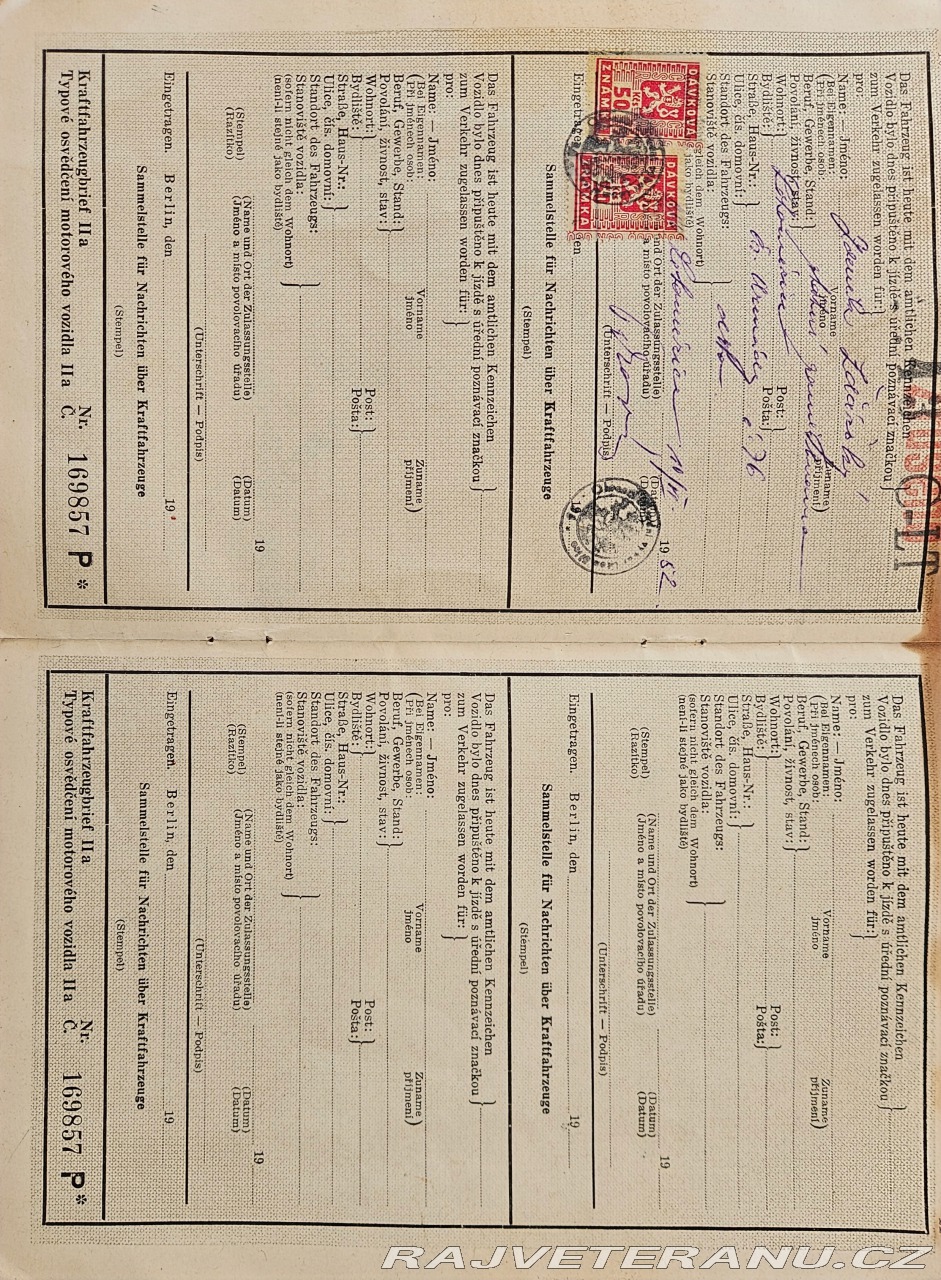 Das Fahrzeug ist heute mit dem amtlichen Kennzeichen
Vozidlo bylo dnes připuštěno k jízdě s úřední poznávací značkou
zum Verkehr zugelassen worden für:
pro:
O-LT
Name: — Jméno:
(Bei Eigennamen: Vorname Zuname
(Při jménech osob: jméno příjmení)
Beruf, Gewerbe, Stand:
Povolání, živnost, stav:
Wohnort: Post:
Bydliště: Pošta:
Straße, Haus-Nr.:
Ulice, čís. domovní: č. 76
Standort des Fahrzeugs:
Stanoviště vozidla:
gleich dem Wohnort)
jako bydliště)
DÁVKOVÁ
50 Kčs
ZNÁMKA
DÁVKOVÁ
ZNÁMKA
1952
und Ort der Zulassungsstelle) (Datum)
a místo povolovacího úřadu) (Datum)
(Unterschrift — Podpis)
Eingetragen
Sammelstelle für Nachrichten über Kraftfahrzeuge
(Stempel)
Das Fahrzeug ist heute mit dem amtlichen Kennzeichen
Vozidlo bylo dnes připuštěno k jízdě s úřední poznávací značkou
zum Verkehr zugelassen worden für:
pro:
Name: — Jméno:
(Bei Eigennamen: Vorname Zuname
(Při jménech osob: jméno příjmení)
Beruf, Gewerbe, Stand:
Povolání, živnost, stav:
Wohnort: Post:
Bydliště: Pošta:
Straße, Haus-Nr.:
Ulice, čís. domovní:
Standort des Fahrzeugs:
Stanoviště vozidla:
(sofern nicht gleich dem Wohnort)
(není-li stejné jako bydliště)
19
(Stempel) (Name und Ort der Zulassungsstelle) (Datum)
(Razítko) (Jméno a místo povolovacího úřadu) (Datum)
(Unterschrift — Podpis)
Eingetragen. Berlin, den 19
Sammelstelle für Nachrichten über Kraftfahrzeuge
(Stempel)
Kraftfahrzeugbrief IIa Nr. 169857 P *
Typové osvědčení motorového vozidla IIa Č.
Das Fahrzeug ist heute mit dem amtlichen Kennzeichen
Vozidlo bylo dnes připuštěno k jízdě s úřední poznávací značkou
zum Verkehr zugelassen worden für:
pro:
Name: — Jméno:
(Bei Eigennamen: Vorname Zuname
(Při jménech osob: jméno příjmení)
Beruf, Gewerbe, Stand:
Povolání, živnost, stav:
Wohnort: Post:
Bydliště: Pošta:
Straße, Haus-Nr.:
Ulice, čís. domovní:
Standort des Fahrzeugs:
Stanoviště vozidla:
(sofern nicht gleich dem Wohnort)
(není-li stejné jako bydliště)
19
(Stempel) (Name und Ort der Zulassungsstelle) (Datum)
(Razítko) (Jméno a místo povolovacího úřadu) (Datum)
(Unterschrift — Podpis)
Eingetragen. Berlin, den 19
Sammelstelle für Nachrichten über Kraftfahrzeuge
(Stempel)
Das Fahrzeug ist heute mit dem amtlichen Kennzeichen
Vozidlo bylo dnes připuštěno k jízdě s úřední poznávací značkou
zum Verkehr zugelassen worden für:
pro:
Name: — Jméno:
(Bei Eigennamen: Vorname Zuname
(Při jménech osob: jméno příjmení)
Beruf, Gewerbe, Stand:
Povolání, živnost, stav:
Wohnort: Post:
Bydliště: Pošta:
Straße, Haus-Nr.:
Ulice, čís. domovní:
Standort des Fahrzeugs:
Stanoviště vozidla:
(sofern nicht gleich dem Wohnort)
(není-li stejné jako bydliště)
19
(Stempel) (Name und Ort der Zulassungsstelle) (Datum)
(Razítko) (Jméno a místo povolovacího úřadu) (Datum)
(Unterschrift — Podpis)
Eingetragen. Berlin, den 19
Sammelstelle für Nachrichten über Kraftfahrzeuge
(Stempel)
Kraftfahrzeugbrief IIa Nr. 169857 P *
Typové osvědčení motorového vozidla IIa Č.
RAJVETERANU.CZ